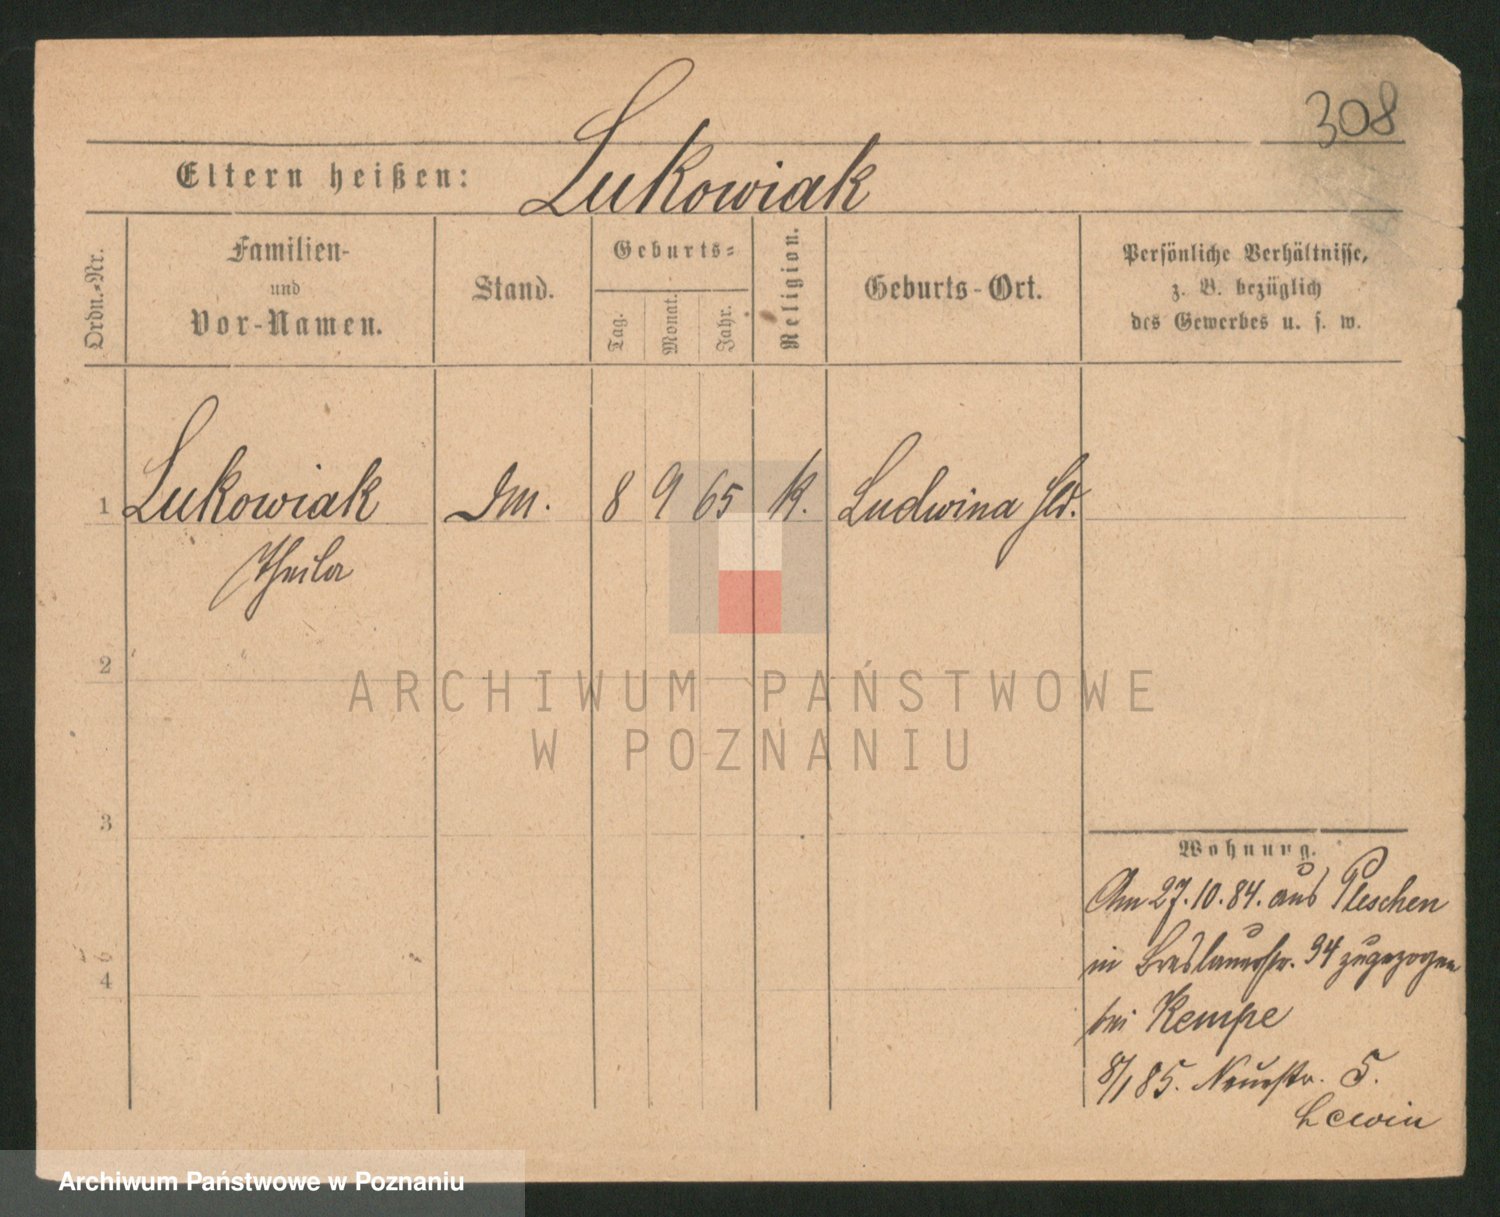 308
Eltern heißen: Lukowiak
Ordn.-Nr.
Familien-
und
Vor-Namen.
Stand.
Geburts-
Tag.
Monat.
Jahr.
Religion.
Geburts-Ort.
Persönliche Verhältnisse,
z. B. bezüglich
des Gewerbes u. s. w.
1 Lukowiak Dm. 8 9 65 k. Ludwina Hld.
2
ARCHIWUM PAŃSTWOWE
W POZNANIU
3
4
Wohnung.
Am 27.10.84. aus Pleschen
in Breslauerstr. 34 zugezogen
bei Kempe
8/1 85. Neuestr. 5.
Lewin
Archiwum Państwowe w Poznaniu